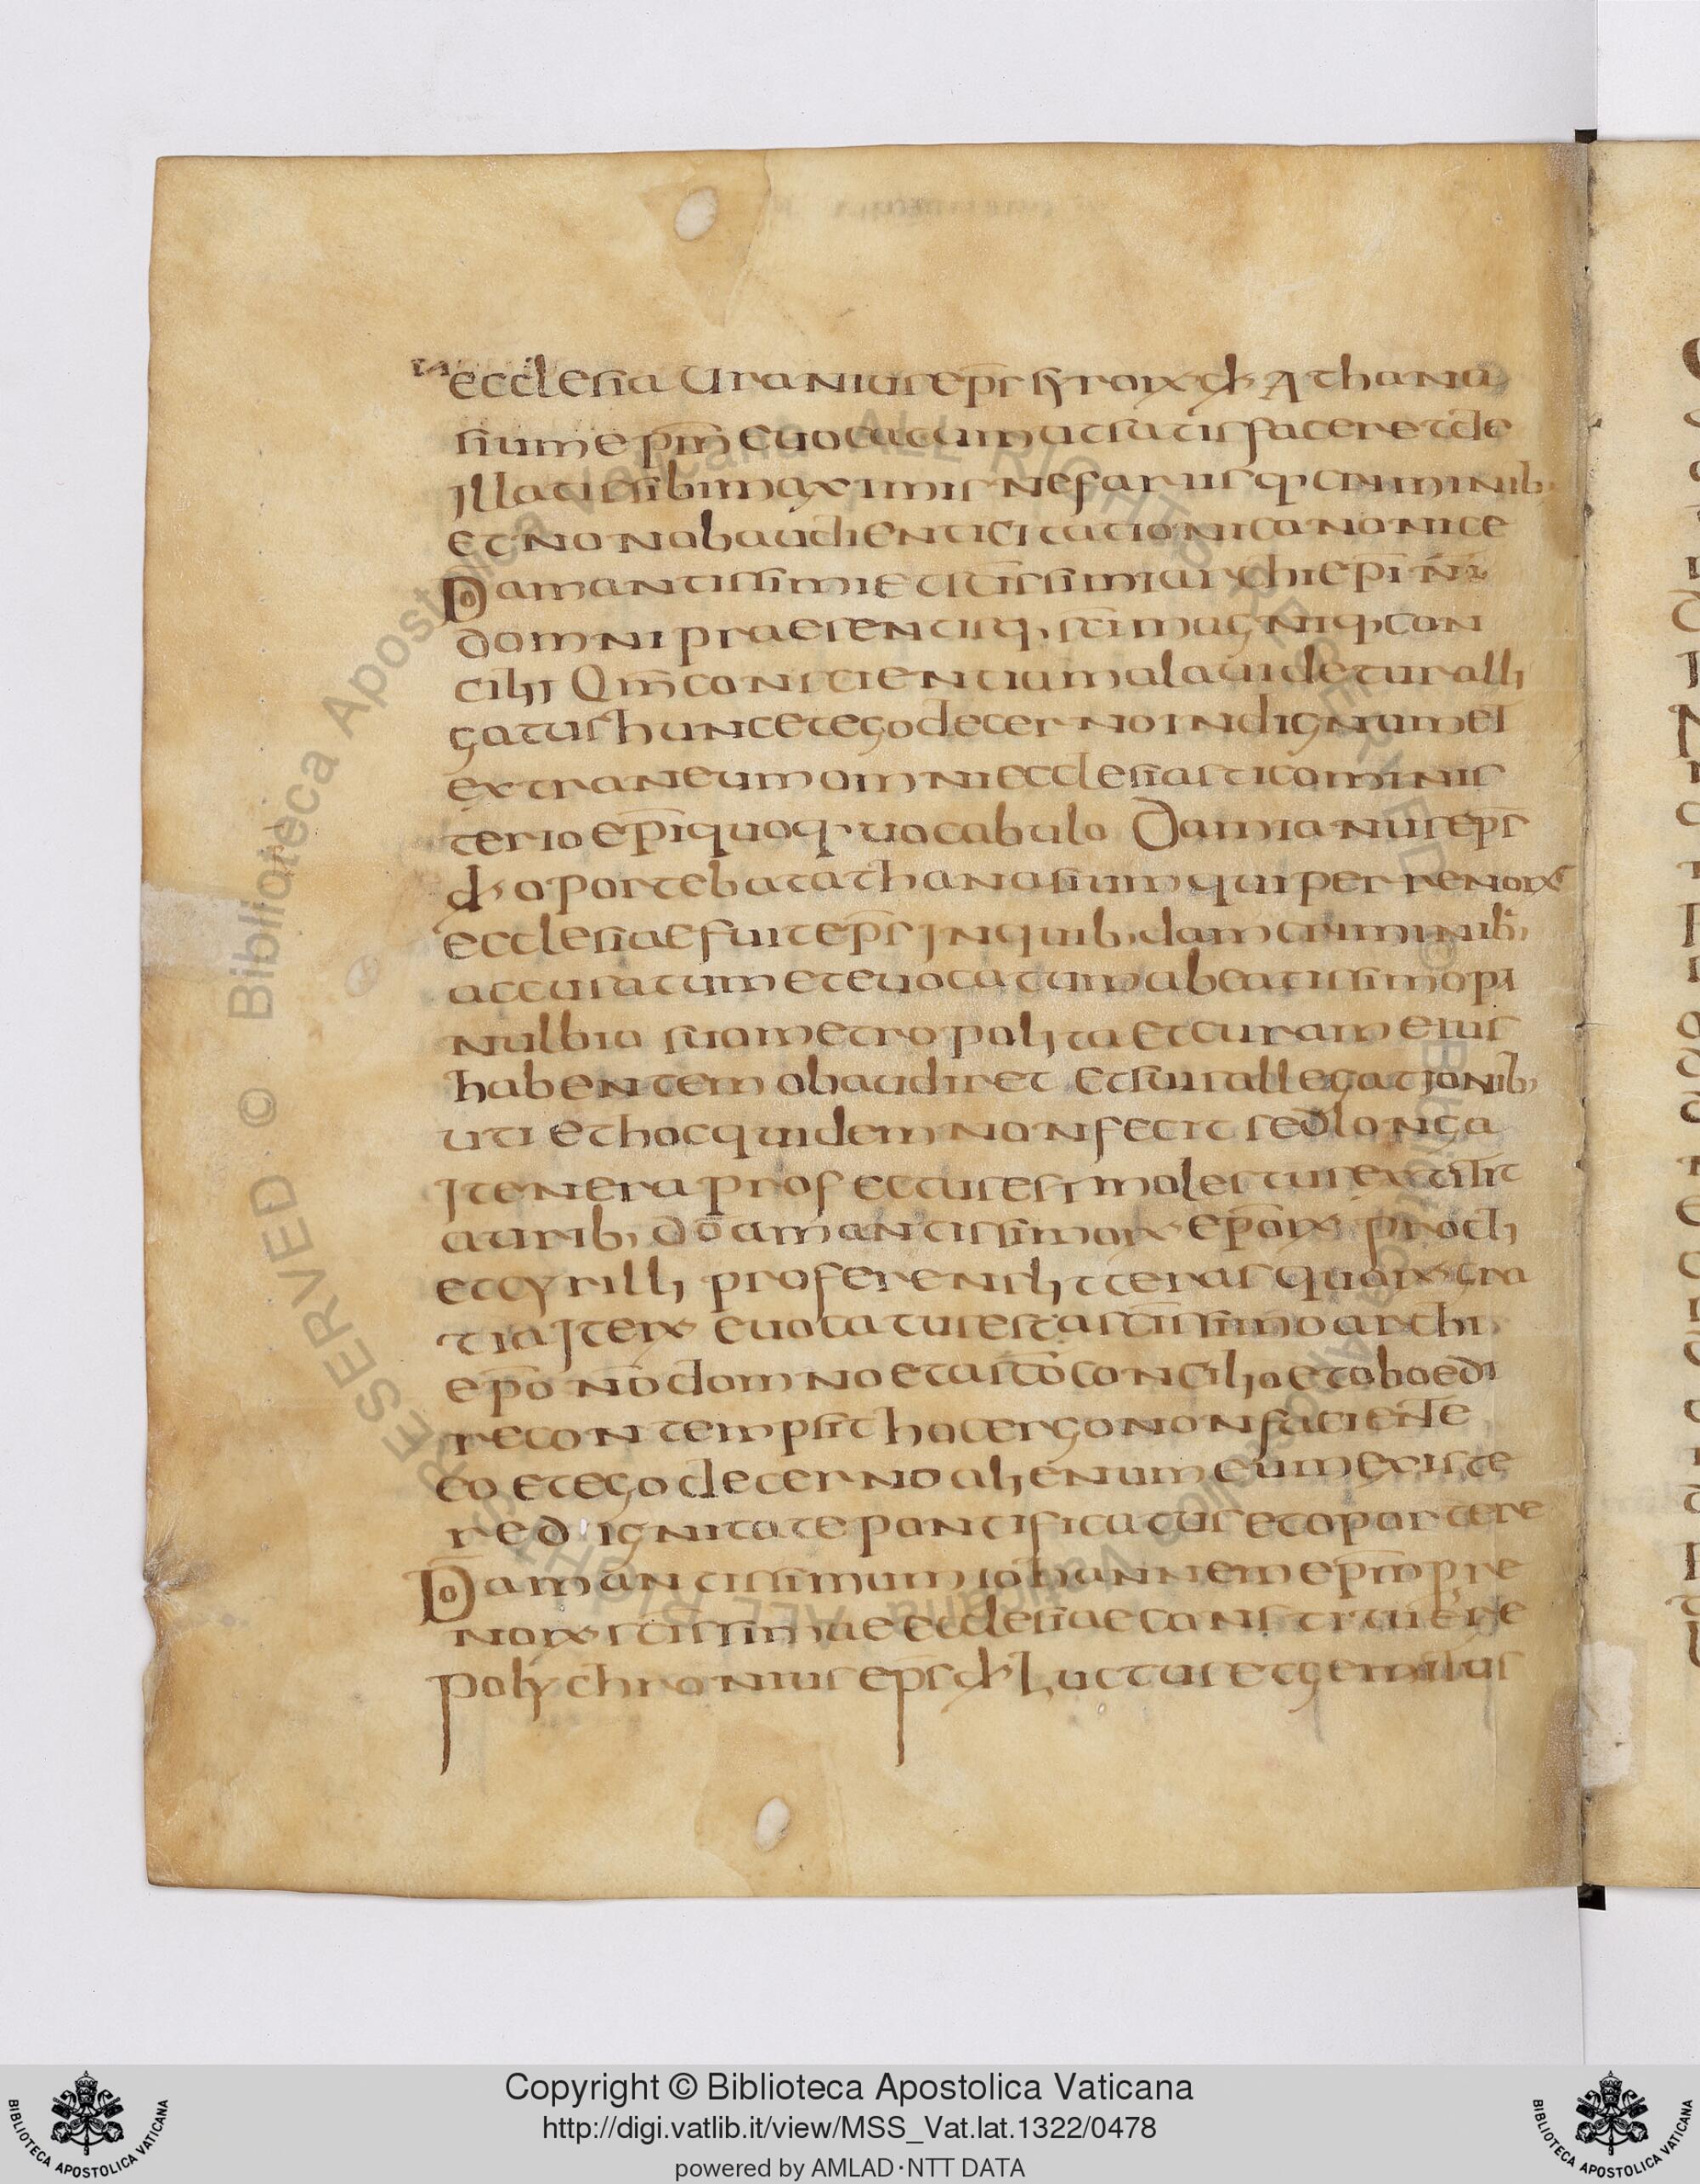 in ecclesia Uranius ep̄s syrorx dx̄ Athana
sium ep̄m euocatum ut satisfaceret de
Illatis sibi maximis nefariisq· criminib·
et non obaudienti citationi canonice
Do amantissimi et sc̄issimi archiepi n̄ri
domni praesentisq, sc̄i magniq, con
cilii Qm̄ conscientia mala uidetur alli
gatus hunc et ego decerno indignum et
extraneum omni ecclesiastico minis
terio ep̄i quoq· uocabulo Damianus ep̄s
dx̄ oportebat athanasium qui perrenorx
ecclesiae fuit ep̄s Inquib,dam criminib;
accusatum et euocatum ab eatissimo pa
nulbio suo metropolita et curam eius
habentem obaudiret et suis allegationib,
uti et hoc quidem non fecit sed longa
Itenera profectus est molestus extitit
aurib, do amantissimorx ep̄orx procli
et cyrilli proferens litteras quarx gra
tia Iterx euocatus est a sc̄issimo archi
epō nō domno et a sc̄o concilio et oboedi
re contempsit hac ergo non faciente
eo et ego decerno alienum eum existe
re dignitate pontificatus et oportere
Do amantissimum iohannem ep̄m pre
norx sc̄issimae ecclesiae constituere
polychronius ep̄s dx̄ Luctus et gemitus
Copyright © Biblioteca Apostolica Vaticana
http://digi.vatlib.it/view/MSS_Vat.lat.1322/0478
powered by AMLAD·NTT DATA
BIBLIOTECA APOSTOLICA VATICANA
BIBLIOTECA APOSTOLICA VATICANA